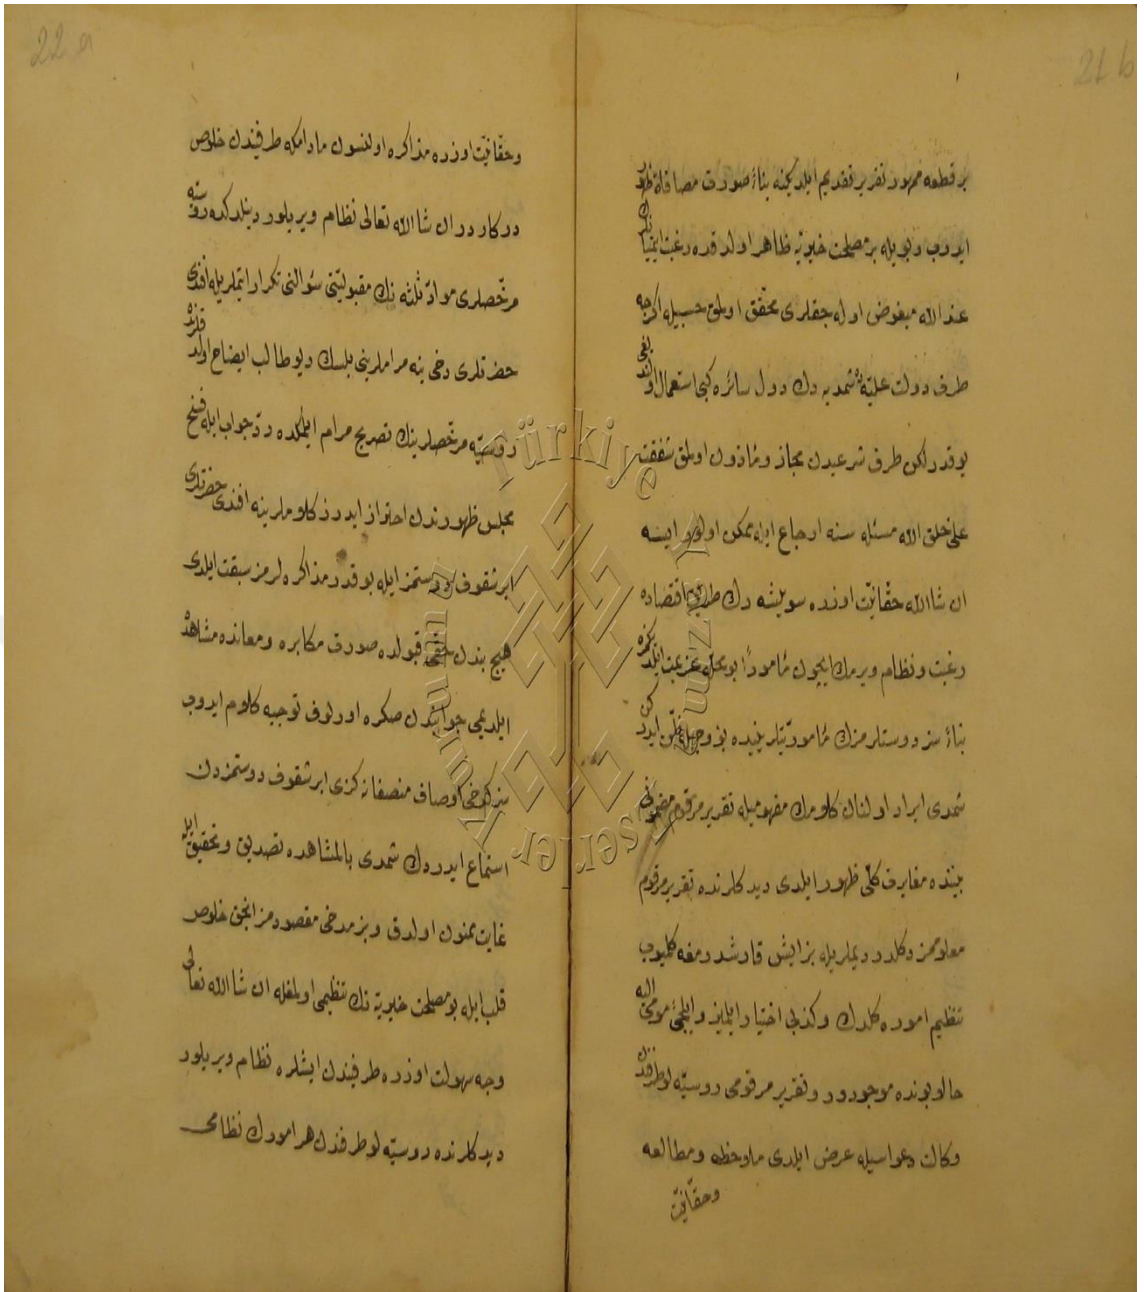 21 b
بر قطعه ممهور تقریر تقدیم ایلدیکنه بناءً صورت مصافاة ظهور
ایدوب و بویله بر مصلحت خیریه ظاهر اولدقده رغبت ایتمیانلر
عند الله مبغوض اوله جقلری محقق اولمق حسبیله اکرچه
طرف دولت علیه شمدیه دك دول سائره کبی استعمال اولند
بوقدر لکن طرف شرعیدن مجاز و مأذون اولمق شفقت
علی خلق الله مسئله سنه ارجاع ایله ممکن اولور ایسه
ان شا الله حقّانیّت اوزره سویلشه رك طریق اقتضاده
رغبت و نظام ویرمك ایچون مأموراً بو محله عزیمت ایلدیکزه
بناءً سز دوستلرمزك مأموریتلریکزده بو وجهله ظن ایدرکن
شمدی ایراد اولنان کلامك مفهومیله تقریر مرقوم مضمونی
بیننده مغایرت کلّی ظهور ایلدی دیدکلرنده تقریر مرقوم
معلومز دکلدر دیملریله بز ایش قارشدرمغه کلمیوب
تنظیم اموره کلدك و کذبی اختیار ایلمایز و ایلچئ مومی الیه
حالا بونده موجوددر و تقریر مرقومی روسیّه لو طرفندن
وکالت دعواسیله عرض ایلدی ملاحظه و مطالعه
وحقّانیّت
22 a
وحقّانیّت اوزره مذاکره اولنسون مادامکه طرفیندن خلوص
درکاردر ان شا الله تعالی نظام ویریلور دینلدکده روسیه
مرخّصلری موادّ ثلثه نك مقبولیتنی سؤالنی تکرار ایتملریله افندی
حضرتلری دخی ینه مراملرینی بلسك دیو طالب ایضاح اولدقلرنده
روسیّه مرخّصلرینك تصریح مرام ایملکده ردّ جواب ایله فسخ
مجلس ظهورندن احتراز ایدرز کلاملرینه افندی حضرتلری
ابرشقوف دوستمز ایله بوقدر مذاکره لرمز سبقت ایلدی
هیچ بندن حقّی قبولده صورت مکابره و معانده مشاهده
ایلدیمی جوابندن صکره اورلوف توجیه کلام ایدوب
سزك اوصاف منصفانه کزی ابرشقوف دوستمزدن
استماع ایدردك شمدی بالمشاهده تصدیق و تحقیق ایله
غایت ممنون اولدق و بزمدخی مقصودمز انجق خلوص
قلب ایله بو مصلحت خیریّه نك تنظیمی اولمغله ان شا الله تعالی
وجه سهولت اوزره طرفیندن ایشلره نظام ویریلور
دیدکلرنده روسیّه لو طرفندن هر امورك نظامی
Türkiye Yazma Eserler Kurumu